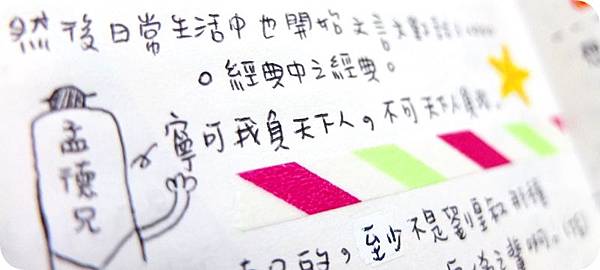 然後日常生活中也開始文言文對話……
。經典中之經典。
寧可我負天下人，不可天下人負我。
孟德兄
的，至少不是劉皇叔那種
之輩啊。